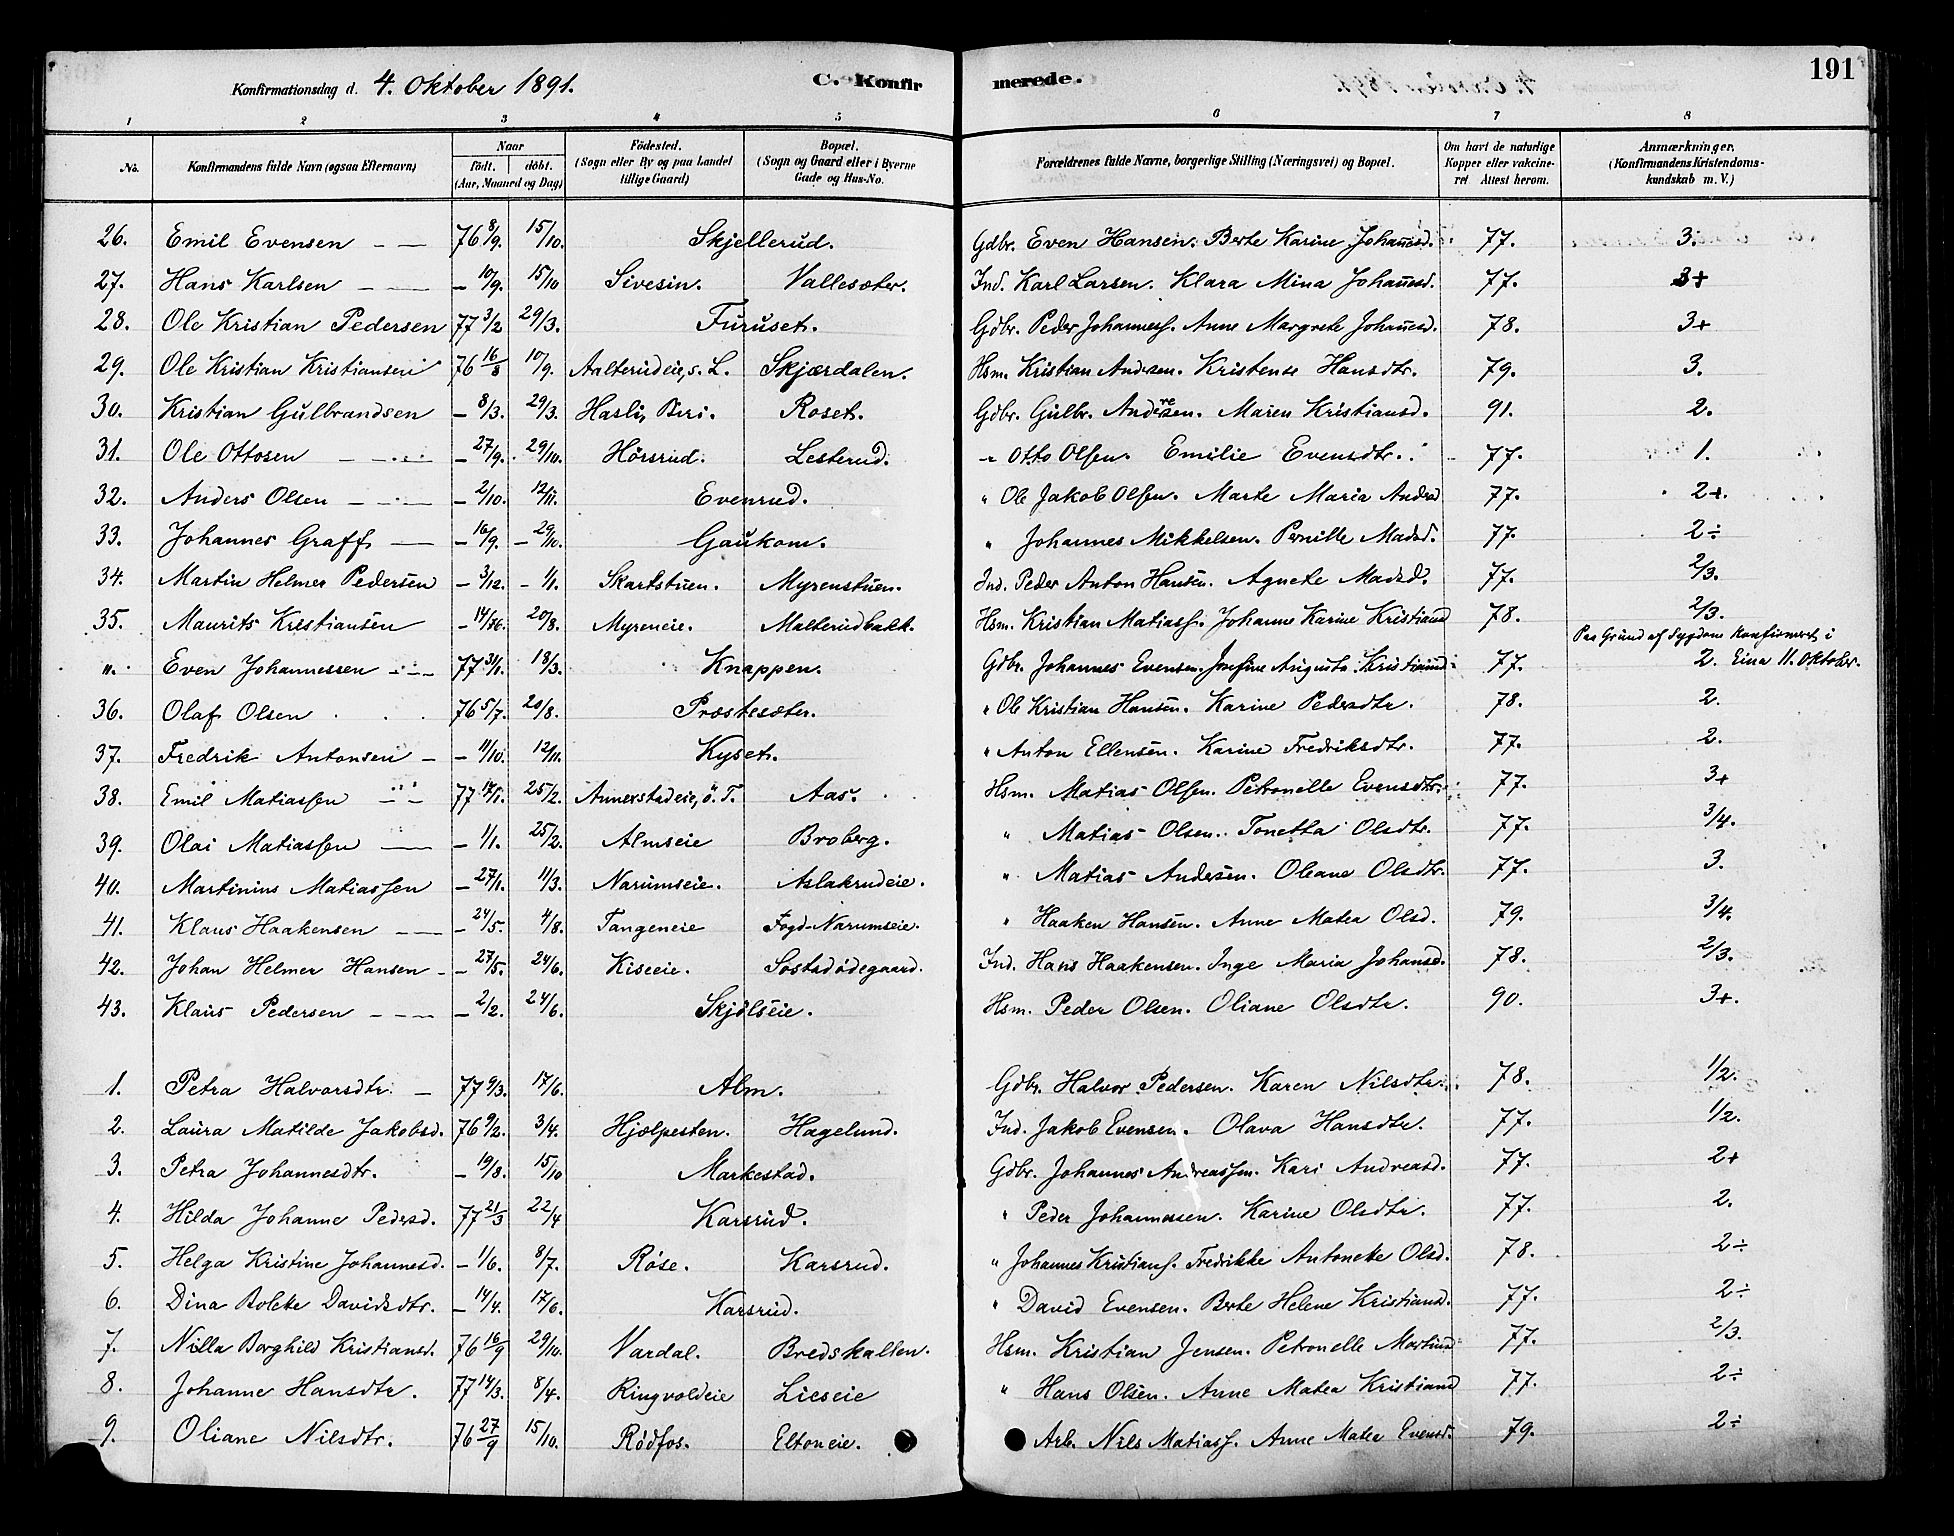 Konfirmationsdag d. 4. Oktober 1891. C. Konfirmerede. 191
1 2 3 4 5 6 7 8
No. Konfirmandens fulde Navn (ogsaa Efternavn) Naar født. døbt. (Aar, Maaned og Dag) Fødested. (Sogn eller By og paa Landet tillige Gaard) Bopæl. (Sogn og Gaard eller i Byerne Gade og Hus-No. Forældrenes fulde Navne, borgerlige Stilling (Næringsvei) og Bopæl. Om havt de naturlige Kopper eller vaccineret Attest herom. Anmærkninger, (Konfirmandens Kristendomskundskab m. V.)
26. Emil Evensen 76 8/9. 15/10. Skjellerud. Gdbr. Even Hansen. Berte Karine Johannesd. 77. 3.
27. Hans Karlsen — 10/9. 15/10 Sivesin. Vallesæter. Ind. Karl Larsen. Klara Mina Johannesd. 77. 3+
28. Ole Kristian Pedersen 77 3/2 29/3. Furuset. Gdbr. Peder Johanness. Anne Margrete Johannesd. 78. 3+
29. Ole Kristian Kristiansen 76 16/8 10/9. Aalterudeie, s. L. Skjærdalen. Hsm. Kristian Andersen. Kristense Hansdtr. 79. 3.
30. Kristian Gulbrandsen — 8/3. 29/3. Hasli, Biri. Roset. Gdbr. Gulbr. Andersen. Maren Kristiansd. 91. 2.
31. Ole Ottosen — 27/9. 29/10. Hørsrud. Lesterud. " Otto Olsen. Emilie Evensdtr. 77. 1.
32. Anders Olsen — 2/10. 12/11. Evenrud. " Ole Jakob Olsen. Marte Maria Andersd 77. 2+.
33. Johannes Graff — 16/9. — 29/10. Gaukom. " Johannes Mikkelsen. Pernille Madsd. 77. 2÷
34. Martin Helmer Pedersen — 3/12. — 1/1. Skartstuen. Myrenstuen. Ind. Peder Anton Hansen. Agnete Madsd. 77. 2/3.
35. Maurits Kristiansen — 14/76. 20/8. Myreneie. Malterudbakk. Hsm. Kristian Matiass. Johanne Karine Kristiansd 78. 2/3.
Paa Grund af Sygdom konfirmeret i
". Even Johannessen 77 31/1. 18/3. Knappen. Gdbr. Johannes Evensen. Josefine Augusta Kristiansd. 77. 2. Eina 11. Oktober.
36. Olaf Olsen 76 5/7. 20/8. Præstesæter. " Ole Kristian Hansen. Karine Pedersdtr. 78. 2.
37. Fredrik Antonsen — 11/10. 12/11. Kyset. " Anton Ellensen. Karine Fredriksdtr. 77. 2.
38. Emil Matiassen 77 17/1. 25/2. Annerstadeie, ö. T. Aas. Hsm. Matias Olsen. Petronelle Evensdtr. 77. 3+
39. Olai Matiassen — 1/1. 25/2. Almseie Broberg. " Matias Olsen. Tonetta Olsdtr. 77. 3/4.
40. Martinius Matiassen — 27/1. 11/3. Narumseie. Aslakrudeie. " Matias Andersen. Oleane Olsdtr. 77. 3.
41. Klaus Haakensen — 24/5. 4/8. Tangeneie Fogd-Narumseie. " Haaken Hansen. Anne Matea Olsd. 79. 3/4.
42. Johan Helmer Hansen — 27/5. 24/6. Kiseeie. Sostadødegaard. Ind. Hans Haakensen. Inge Maria Johansd. 78. 2/3.
43. Klaus Pedersen — 2/2. 24/6. Skjølseie. Hsm. Peder Olsen. Oliane Olsdtr. 90. 3+.
1. Petra Halvorsdtr. 77 9/3. 17/6. Alm. Gdbr. Halvor Pedersen. Karen Nilsdtr. 78. 1/2.
2. Laura Matilde Jakobsd. 76 9/2. 3/4. Hjælpesten. Hagelund. Ind. Jakob Evensen. Olava Hansdtr. 77. 1/2.
3. Petra Johannesdtr. — 19/8. 15/10 Markestad. Gdbr. Johannes Andreassen. Kari Andreasd. 77. 2+
4. Hilda Johanne Pedersd. 77 21/3 22/4 Karsrud. " Peder Johannessen. Karine Olsdtr. 77. 2.
5. Helga Kristine Johannesd. — 1/6. 8/7. Røse. Karsrud. " Johannes Kristians. Fredrikke Antonette Olsd. 78. 2÷
6. Dina Bolette Davidsdtr. — 14/4. 17/6. Karsrud. " David Evensen. Berte Helene Kristiansd. 77. 2÷
7. Nilla Borghild Kristiansd. 76 16/9 29/10. Vardal. Bredskallen. Hsm. Kristian Jensen. Petronelle Martinsd 77. 2/3.
8. Johanne Hansdtr. 77 14/3. 8/4. Ringvoldeie Lieseie " Hans Olsen. Anne Matea Kristiansd 77. 2÷
9. Oliane Nilsdtr. 76 27/9 15/10. Rødfos. Eltoneie. Arb. Nils Matiass. Anne Matea Evensd. 79. 2÷